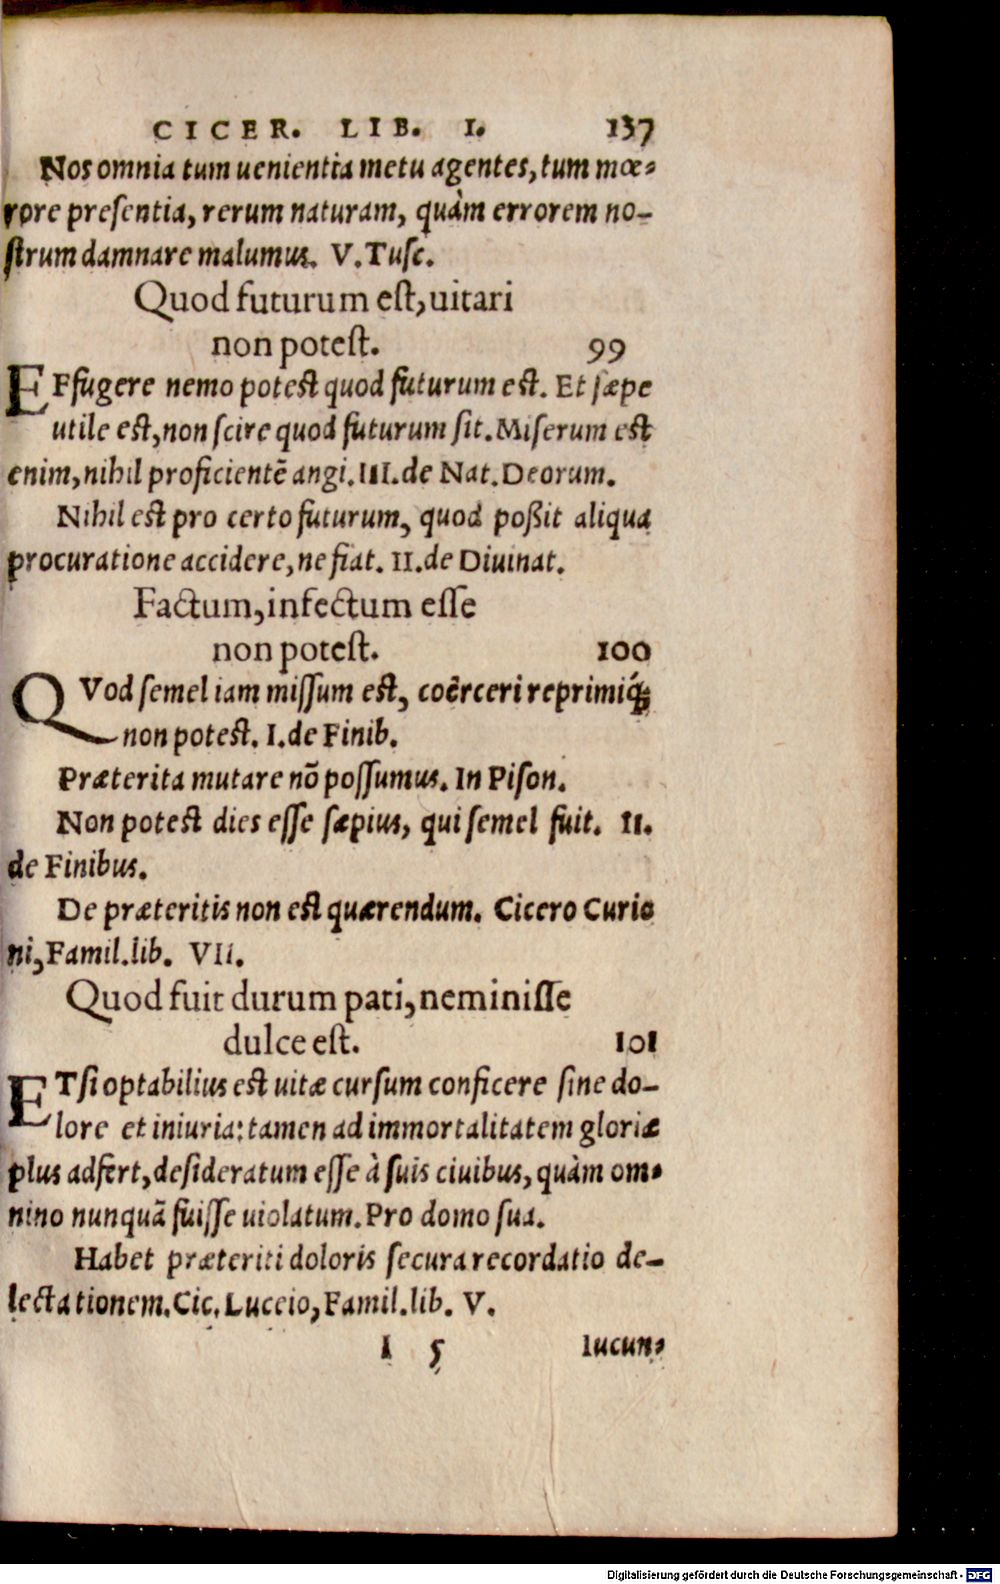 CICER. LIB. I. 137
Nos omnia tum uenientia metu agentes, tum mœ-
rore presentia, rerum naturam, quàm errorem no-
strum damnare malumus. V. Tusc.
Quod futurum est, uitari
non potest. 99
EFfugere nemo potest quod futurum est. Et sæpe
utile est, non scire quod futurum sit. Miserum est
enim, nihil proficientẽ angi. III. de Nat. Deorum.
Nihil est pro certo futurum, quod poßit aliqua
procuratione accidere, ne fiat. II. de Diuinat.
Factum, infectum esse
non potest. 100
QVod semel iam missum est, coërceri reprimiq́;
non potest. I. de Finib.
Præterita mutare nõ possumus. In Pison.
Non potest dies esse sæpius, qui semel fuit. II.
de Finibus.
De præteritis non est quærendum. Cicero Curio
ni, Famil. lib. VII.
Quod fuit durum pati, neminisse
dulce est. 101
ETsi optabilius est uitæ cursum conficere sine do-
lore et iniuria: tamen ad immortalitatem gloriæ
plus adfert, desideratum esse à suis ciuibus, quàm om-
nino nunquã fuisse uiolatum. Pro domo sua.
Habet præteriti doloris secura recordatio de-
lectationem. Cic. Lucceio, Famil. lib. V.
I 5 Iucun-
Digitalisierung gefördert durch die Deutsche Forschungsgemeinschaft - DFG